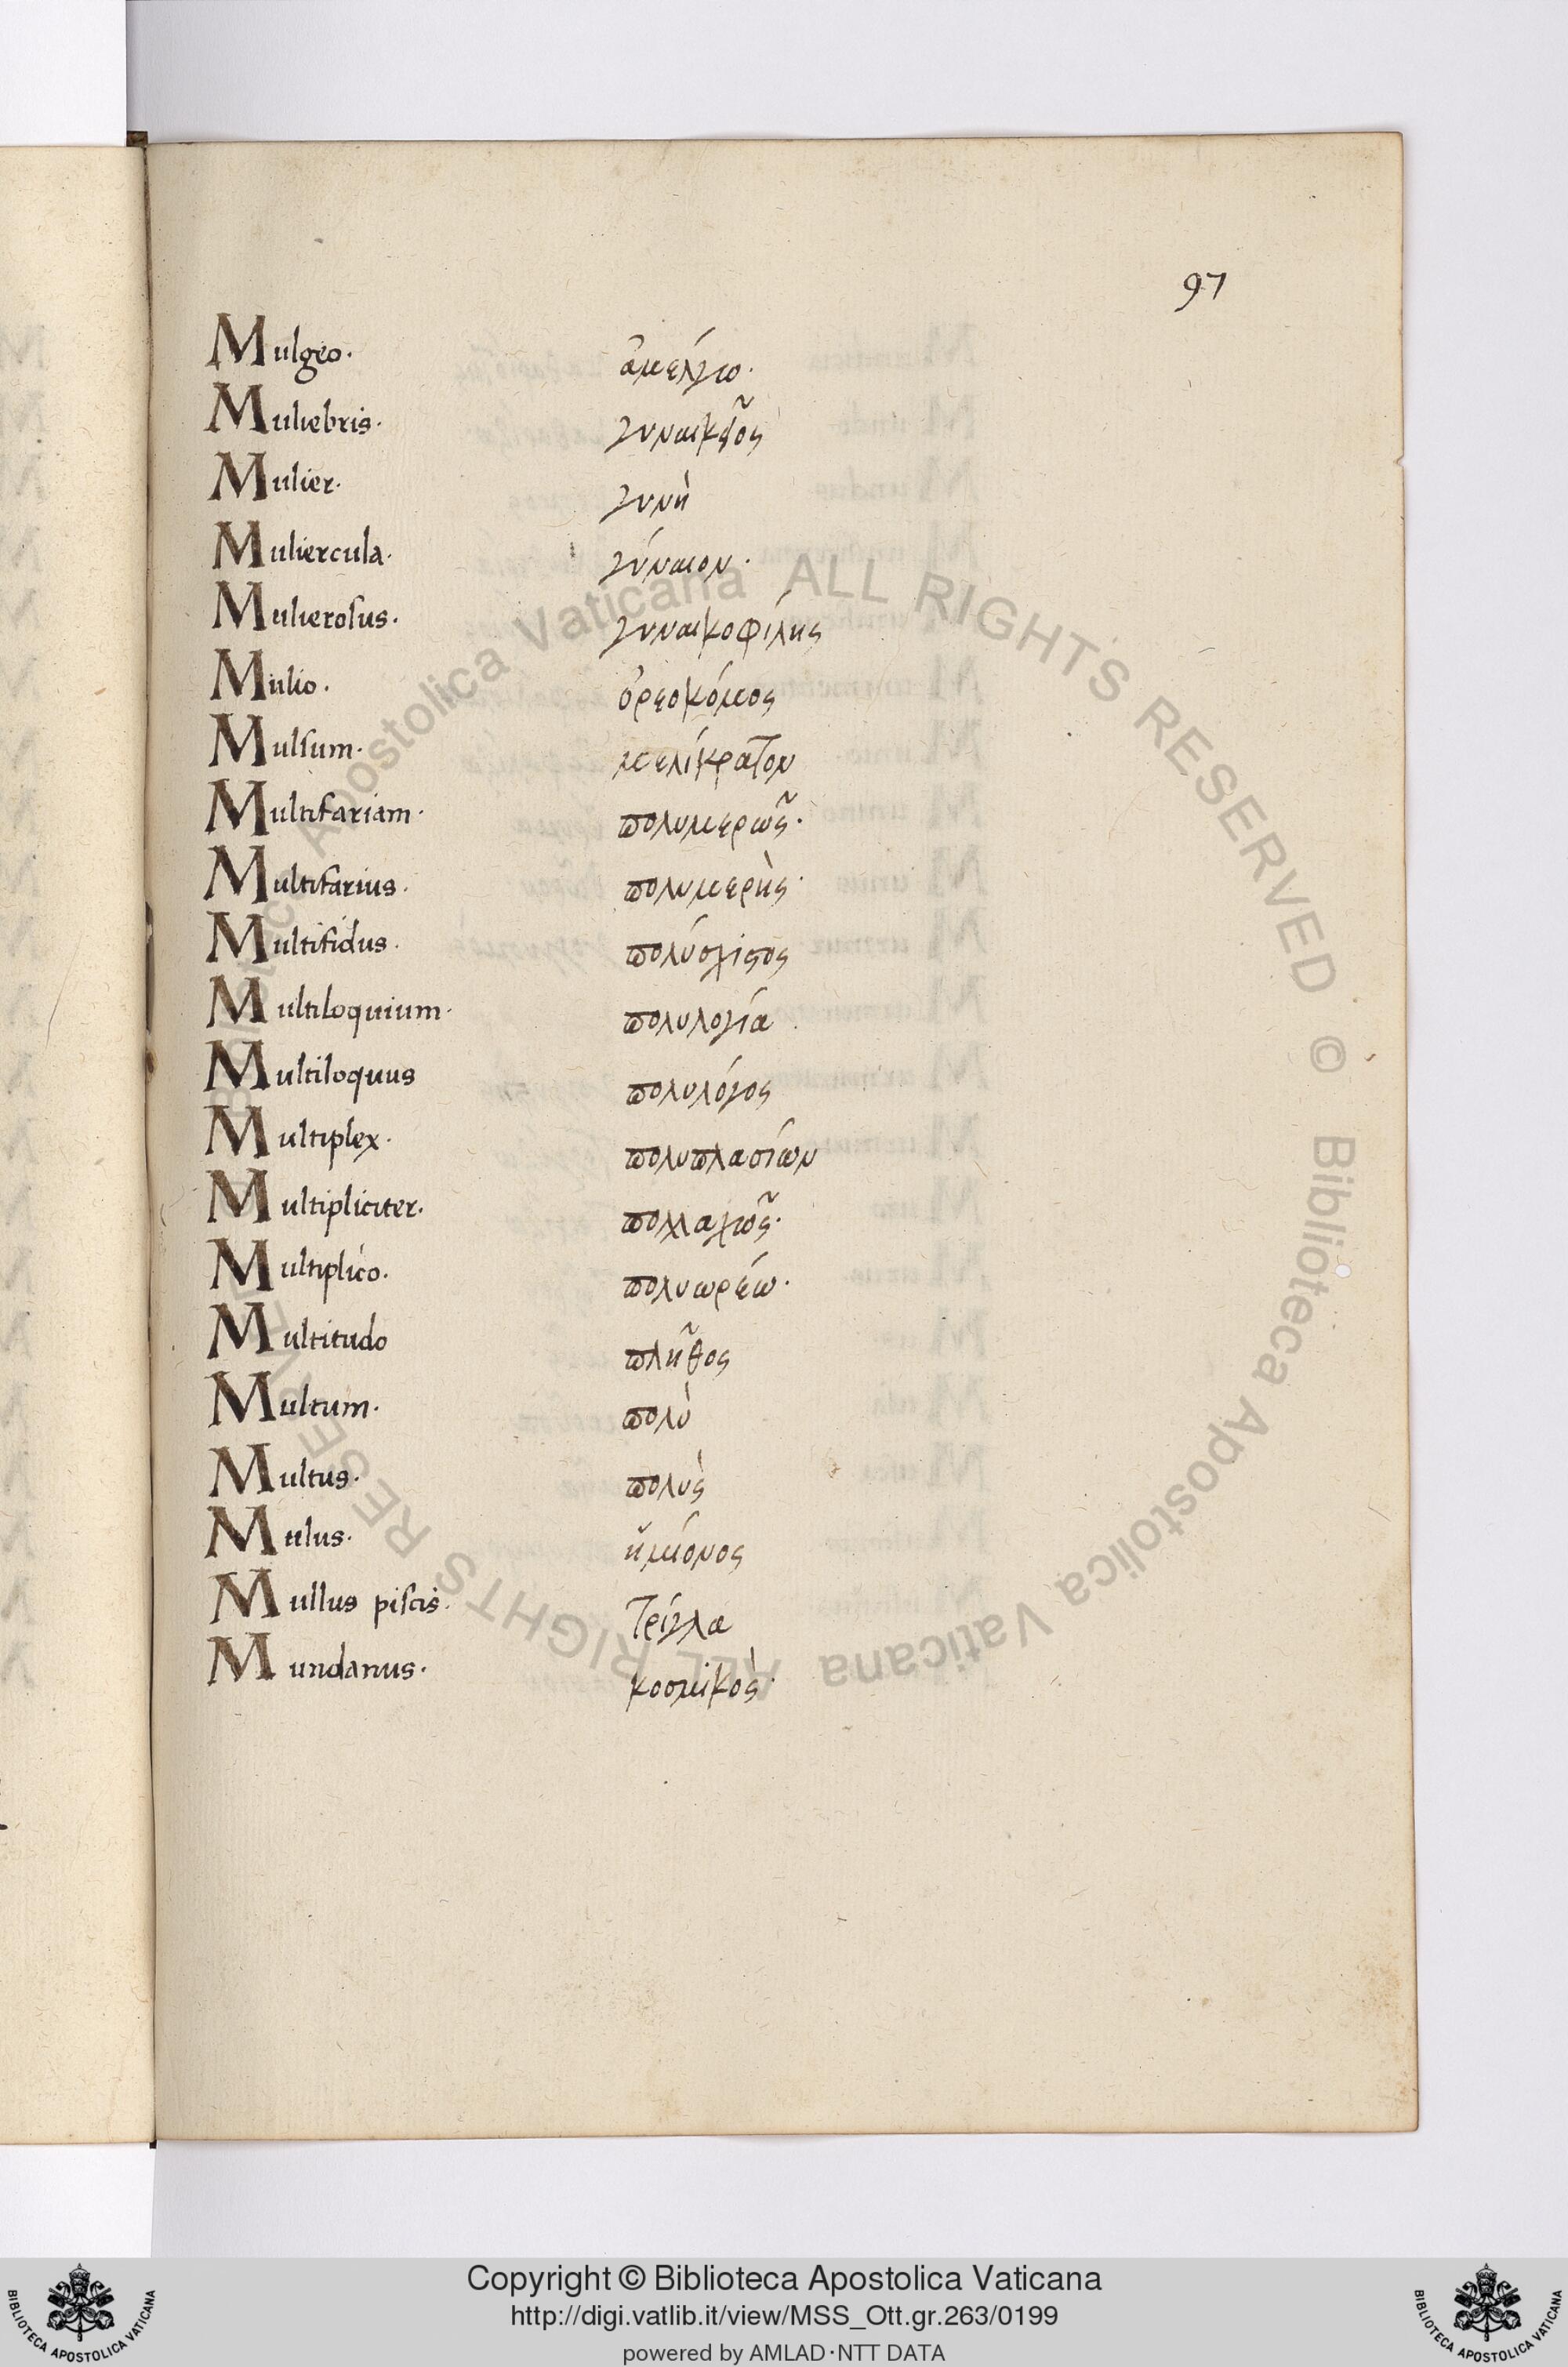 97
Mulgeo. ἀμέλγω.
Muliebris. γυναικεῖος
Mulier. γυνὴ
Muliercula. γύναιον.
Mulierosus. γυναικοφίλης
Mulio. ὀρεοκόμος
Mulsum. μελίκρατον
Multifariam. πολυμερῶς.
Multifarius. πολυμερὴς.
Multifidus. πολύσχιστος
Multiloquium. πολυλογία.
Multiloquus πολυλόγος
Multiplex. πολυπλασίων
Multipliciter. πολλαχῶς.
Multiplico. πολυωρέω.
Multitudo πλῆθος
Multum. πολὺ
Multus. πολὺς
Mulus. ἡμίονος
Mullus piscis. τρίγλα
Mundanus. κοσμικὸς.
Biblioteca Apostolica Vaticana ALL RIGHTS RESERVED ©
Biblioteca Apostolica Vaticana ALL RIGHTS RESERVED
Copyright © Biblioteca Apostolica Vaticana
http://digi.vatlib.it/view/MSS_Ott.gr.263/0199
powered by AMLAD·NTT DATA
BIBLIOTECA APOSTOLICA VATICANA
BIBLIOTECA APOSTOLICA VATICANA